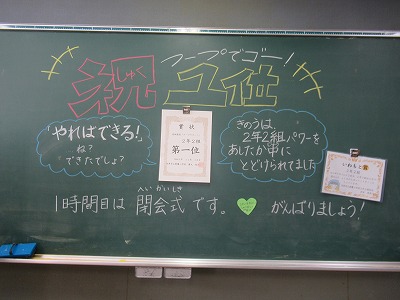 フープでゴー！
祝 1位
しゅく
「やればできる！」
ね？
できたでしょ？
賞状
2年2組
第一位
きのうは、
2年2組パワーを
とどけられてました
いねもと賞
へいかいしき
1時間目は 閉会式 です。
がんばりましょう！